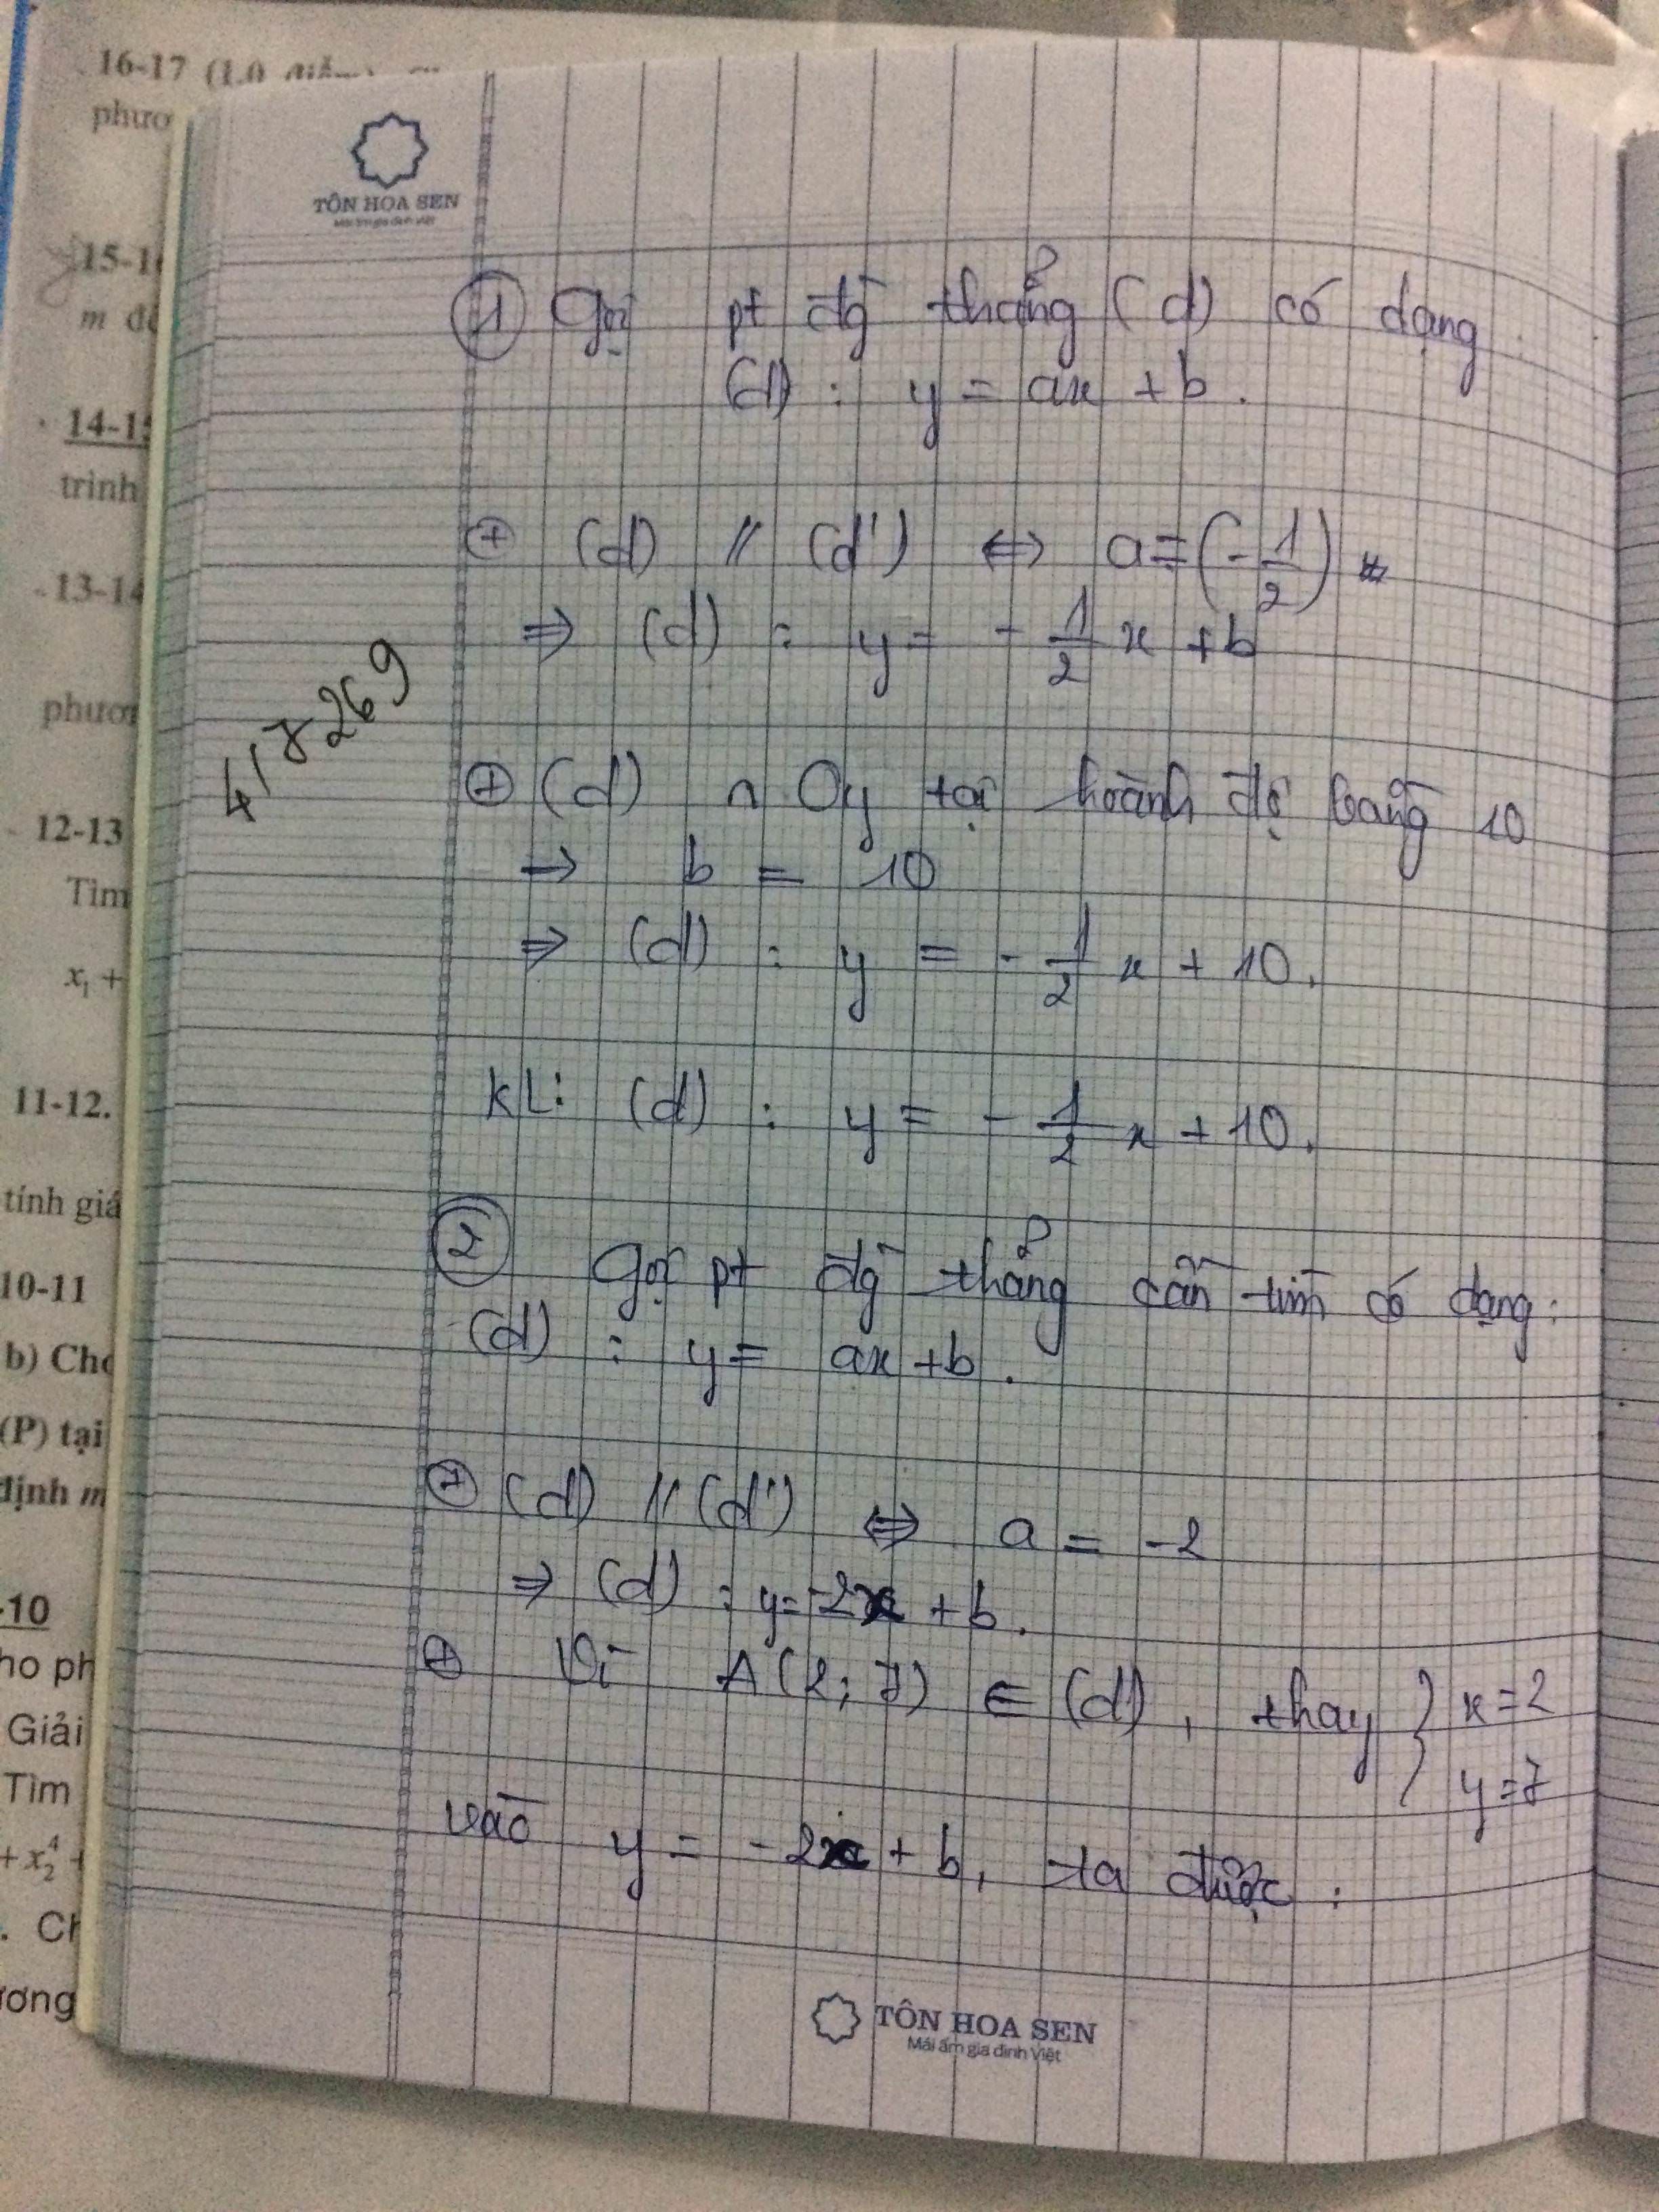 16-17 (1.0 điểm)
phươ
TÔN HOA SEN
Mái ấm gia đình Việt
15-1
m để
14-15
trình
13-14
phươn
12-13
Tìm
x₁ +
11-12.
tính giá
10-11
b) Cho
(P) tại
định m
-10
ho ph
Giải
Tìm
+ x₂⁴ +
. Ch
ương
① Gọi pt đg thẳng (d) có dạng
(d) : y = ax + b.
⊕ (d) // (d') ⇔ a = (-1/2)
⇒ (d) : y = -1/2 x + b
⊕ (d) ∩ Oy tại hoành độ bằng 10
→ b = 10
⇒ (d) : y = -1/2 x + 10.
KL: (d) : y = -1/2 x + 10.
② Gọi pt đg thẳng cần tìm có dạng:
(d) : y = ax + b.
⊕ (d) // (d') ⇔ a = -2
⇒ (d) : y = -2x + b.
⊕ Vì A(2; 7) ∈ (d), thay } x = 2
y = 7
vào y = -2x + b, ta được :
417269
TÔN HOA SEN
Mái ấm gia đình Việt